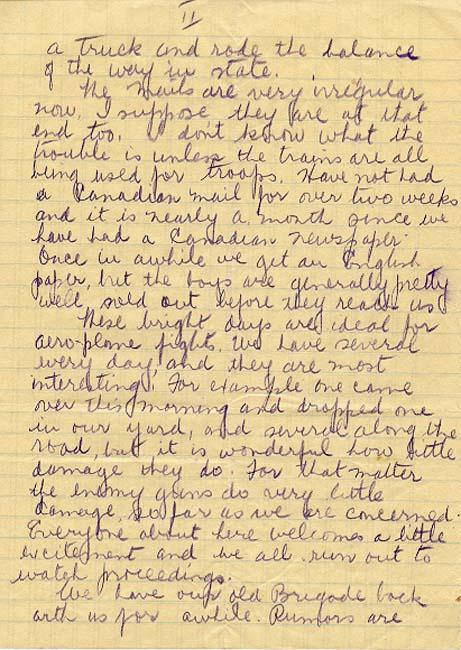 II
a truck and rode the balance
of the way in state.
The mails are very irregular
now, I suppose they are at that
end too. I don't know what the
trouble is unless the trains are all
being used for troops. Have not had
a Canadian mail for over two weeks
and it is nearly a month since we
have had a Canadian newspaper.
Once in awhile we get an English
paper, but the boys are generally pretty
well sold out before they reach us.
These bright days are ideal for
aero-plane fights. We have several
every day, and they are most
interesting. For example one came
over this morning and dropped one
in our yard, and several along the
road, but it is wonderful how little
damage they do. For that matter
the enemy guns do very little
damage, so far as we are concerned.
Everyone about here welcomes a little
excitement and we all run out to
watch proceedings.
We have our old Brigade back
with us for awhile. Rumors are